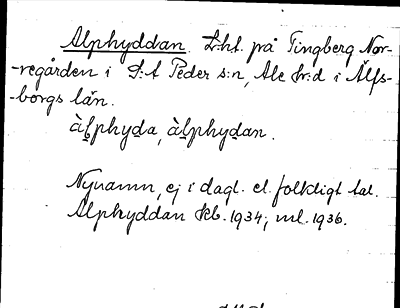 Alphyddan. L:ht. på Tingberg Nor-
-regården i S:t Peder s:n, Ale hr:d i Älfs-
-borgs län.
àl̥phyda, àl̥phydan.
Nynamn, ej i dagl. el. folkligt tal.
Alphyddan kb. 1934, ml. 1936.